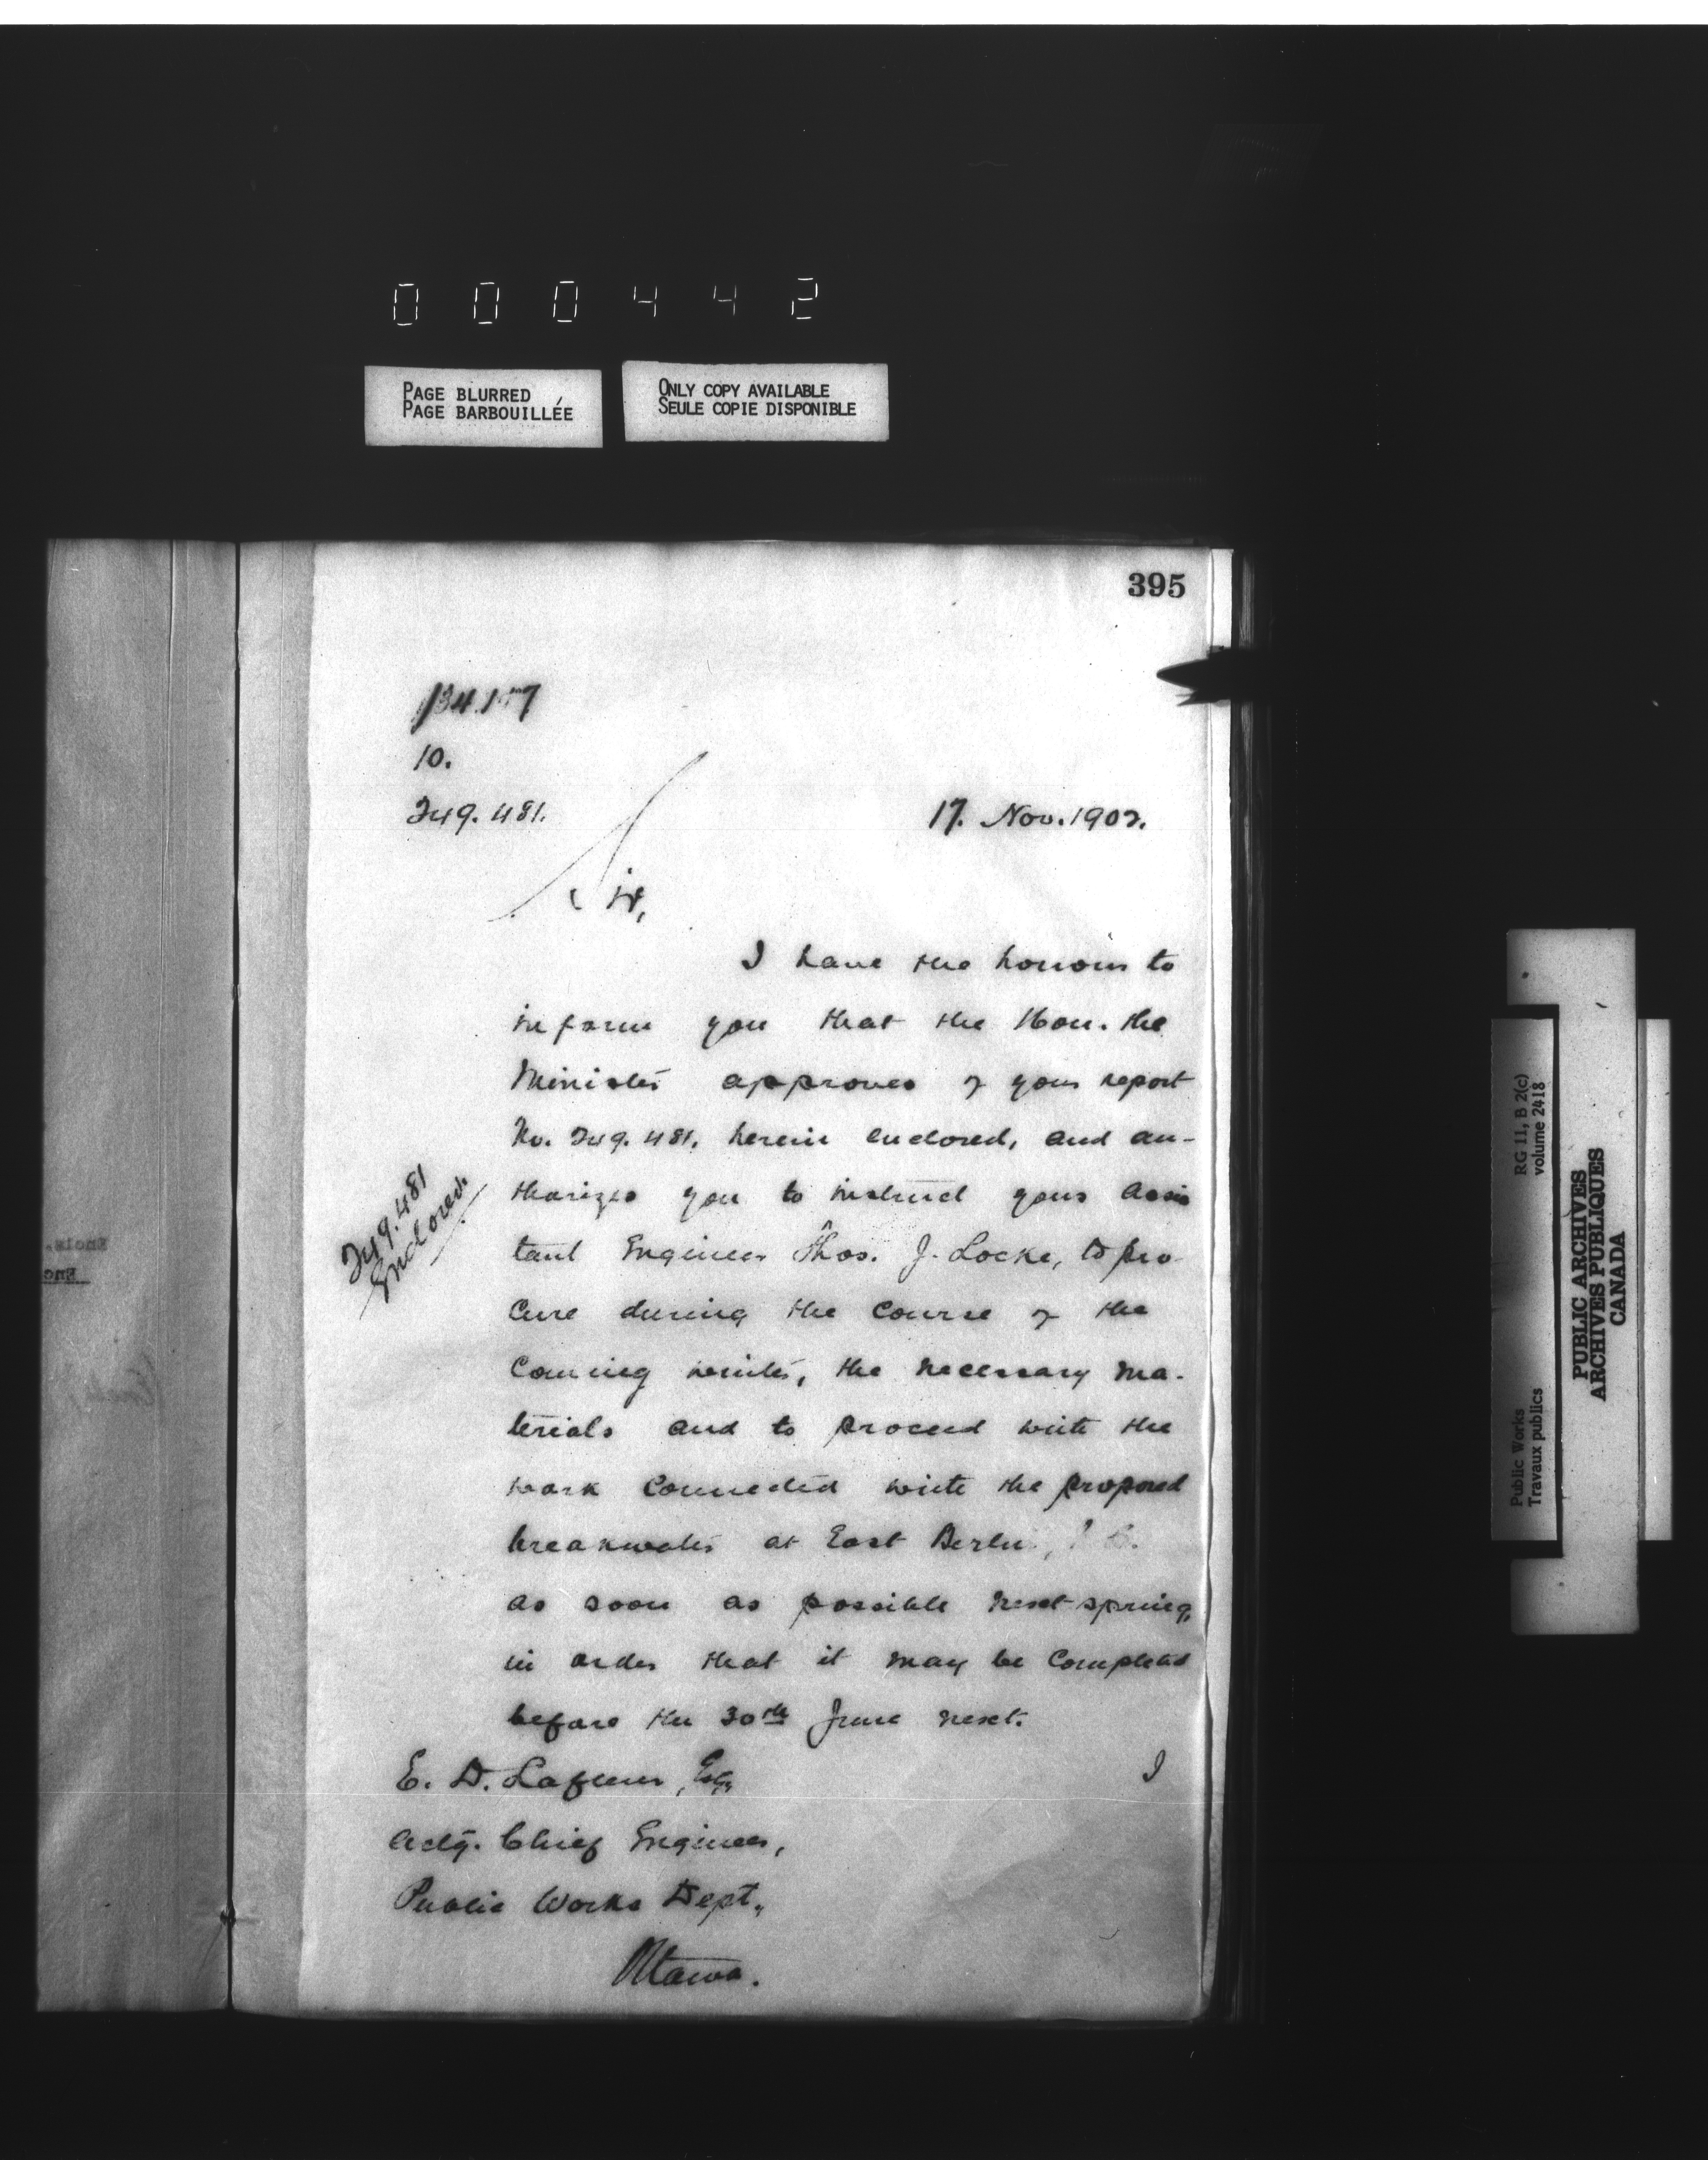 000442
PAGE BLURRED
PAGE BARBOUILLÉE
ONLY COPY AVAILABLE
SEULE COPIE DISPONIBLE
395
10.
249.481.
17. Nov. 1902.
Sir,
I have the honour to
inform you that the Hon. the
Minister approves of your report
No. 249.481, herein enclosed, and au-
thorizes you to instruct your assis
tant Engineer Thos. J. Locke, to pro
cure during the course of the
coming winter, the necessary ma-
terials and to proceed with the
work connected with the proposed
breakwater at East Berlin,
as soon as possible next spring,
in order that it may be completed
before the 30th June next.
249.481
Enclosed.
I
E. D. Lafleur, Esq,
Actg. Chief Engineer,
Public Works Dept.,
Ottawa.
RG 11, B 2(c)
volume 2418
Public Works
Travaux publics
PUBLIC ARCHIVES
ARCHIVES PUBLIQUES
CANADA